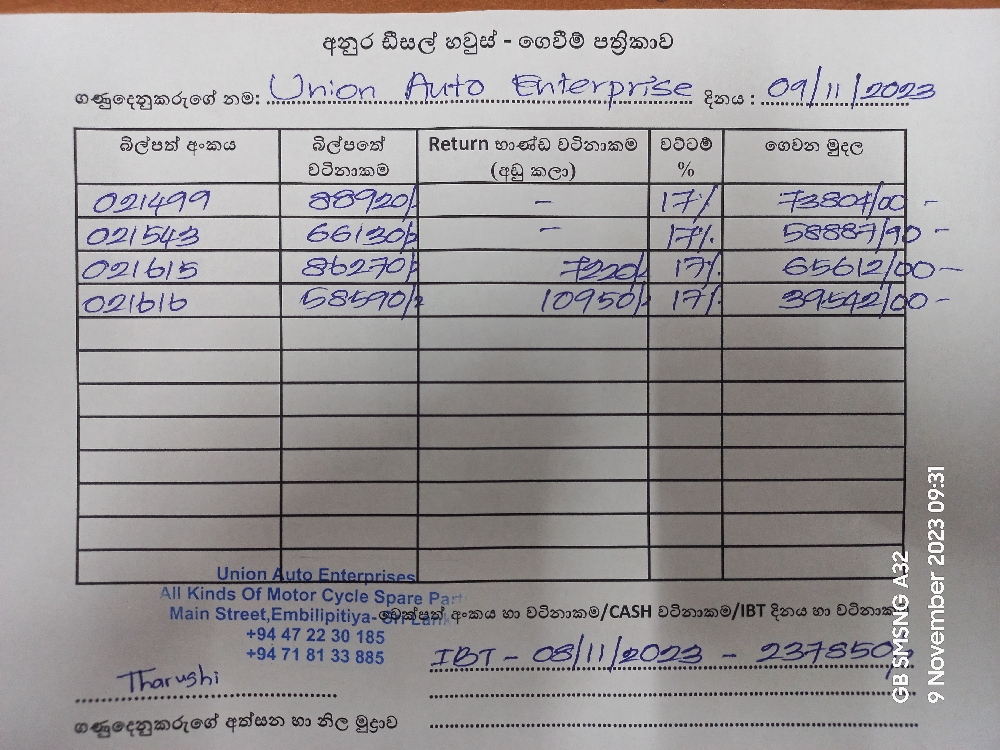 අනුර ඩීසල් හවුස් - ගෙවීම් පත්‍රිකාව
ගණුදෙනුකරුගේ නම: Union Auto Enterprise දිනය : 09/11/2023
බිල්පත් අංකය බිල්පතේ වටිනාකම Return භාණ්ඩ වටිනාකම (අඩු කලා) වට්ටම් % ගෙවන මුදල
021499 88920/- - 17% 73804/00 -
021543 66130/- - 17% 58887/90 -
021615 86270/- 7220/- 17% 65612/00 -
021616 58590/- 10950/- 17% 39542/00 -
Union Auto Enterprises
All Kinds Of Motor Cycle Spare Part
Main Street,Embilipitiya- Sri Lanka
චෙක්පත් අංකය හා වටිනාකම/CASH වටිනාකම/IBT දිනය හා වටිනාකම
+94 47 22 30 185
+94 71 81 33 885
IBT - 08/11/2023 - 237850/-
Tharushi
ගණුදෙනුකරුගේ අත්සන හා නිල මුද්‍රාව
GB SMSNG A32
9 November 2023 09:31